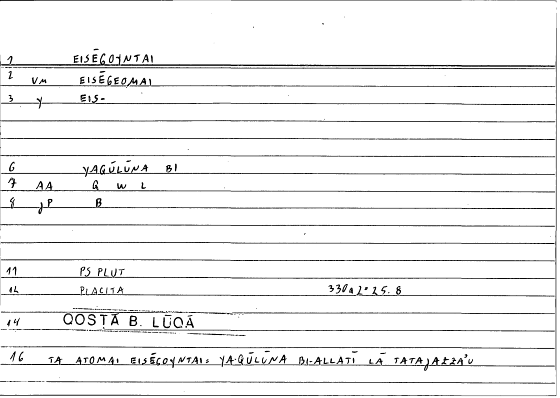 1 EISĒGOYNTAI
2 VM EISĒGEOMAI
3 y EIS-
6 YAQŪLŪNA BI
7 AA Q W L
8 jP B
11 PS PLUT
12 PLACITA 330a2°25.8
14 QOSTĀ B. LŪQĀ
16 TA ATOMAI EISĒGOYNTAI: YAQŪLŪNA BI-ALLATĪ LĀ TATAJAZZA'U